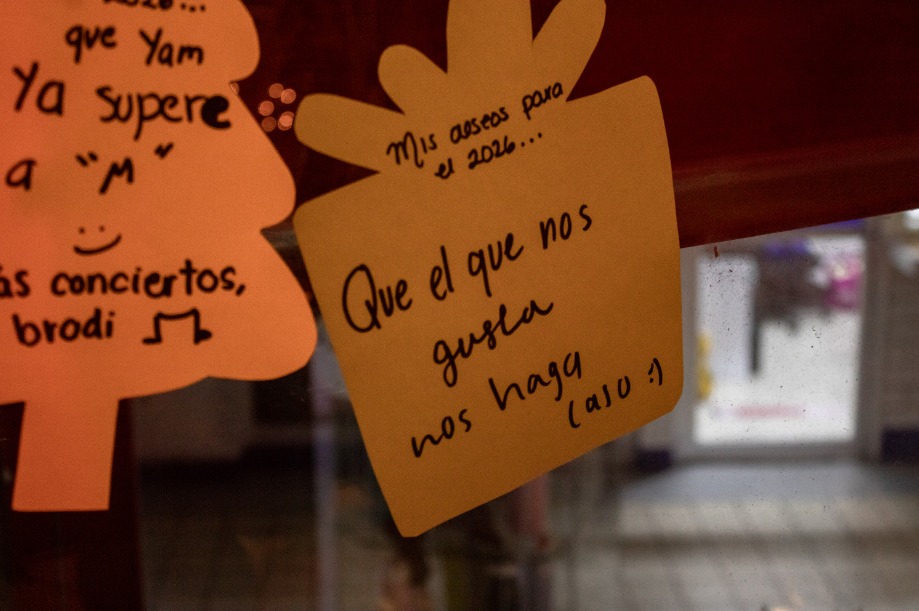 2026...
que Yam
Ya supere
a "M"
ás conciertos,
brodi
Mis deseos para
el 2026...
Que el que nos
gusta
nos haga
(caso :)